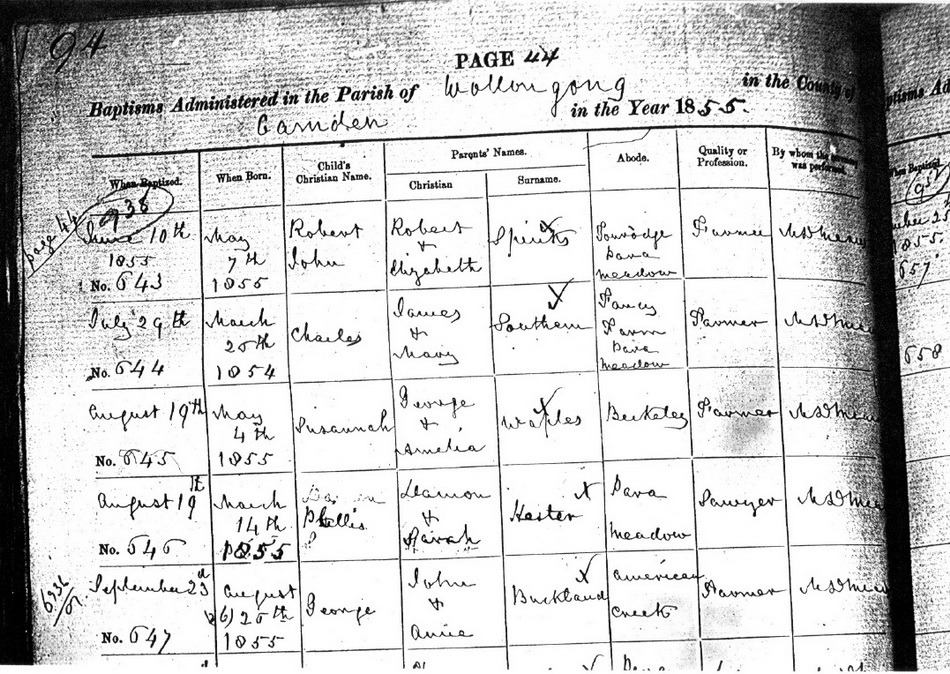 194
PAGE 44
Baptisms Administered in the Parish of Wollongong in the County of
Camden in the Year 1855.
When Baptized. When Born. Child's Christian Name. Parents' Names. Abode. Quality or Profession. By whom the was performed.
Christian Surname.
page 44
938
June 10th
1855
No. 643
May
7th
1855
Robert
John
Robert
&
Elizabeth
Spinks
Dara
meadow
Farmer
July 29th
No. 644
March
25th
1854
Charles
James
&
Mary
Southern
Fancy
Farm
Dara
meadow
Farmer
August 19th
No. 645
May
4th
1855
Susannah
George
&
Amelia
Waples
Berkeley
Farmer
August 19th
No. 646
March
14th
1855
Phillis
?
&
Sarah
Hester
Dara
meadow
Sawyer
September 23d
No. 647
August
25th
1855
George
John
&
Annie
Buckland
American
Creek
Farmer
952
1855.
657
658